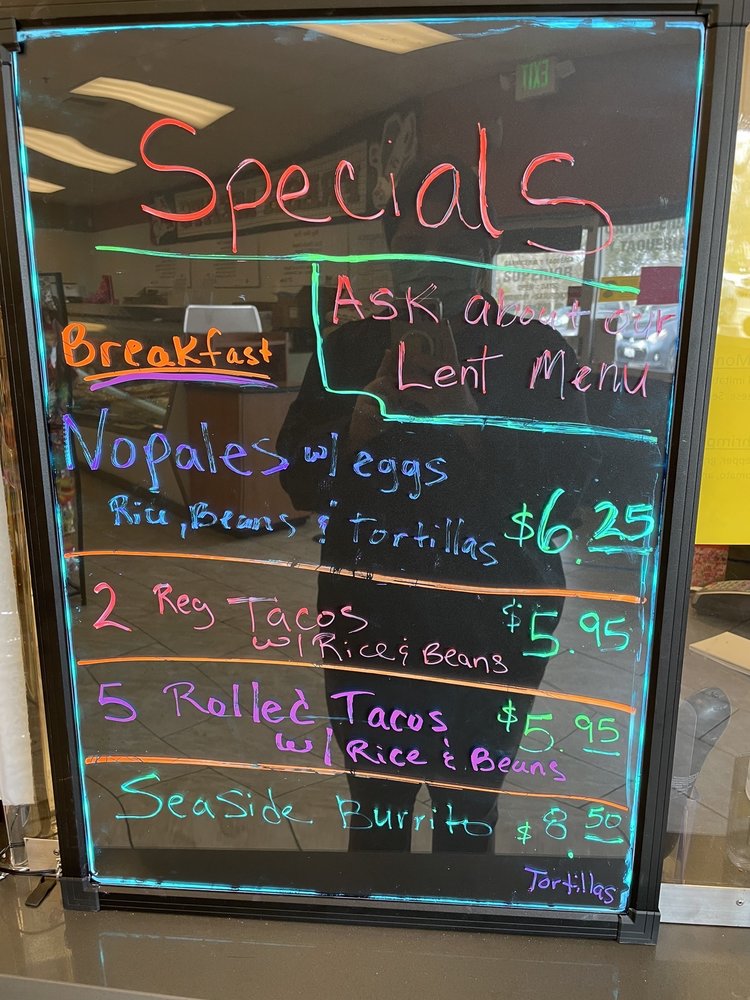 Specials
Ask about our
Lent Menu
Breakfast
Nopales w/ eggs
Rice, Beans & Tortillas $6.25
2 Reg Tacos $5.95
w/ Rice & Beans
5 Rolled Tacos $5.95
w/ Rice & Beans
Seaside Burrito $8.50
Tortillas
EXIT